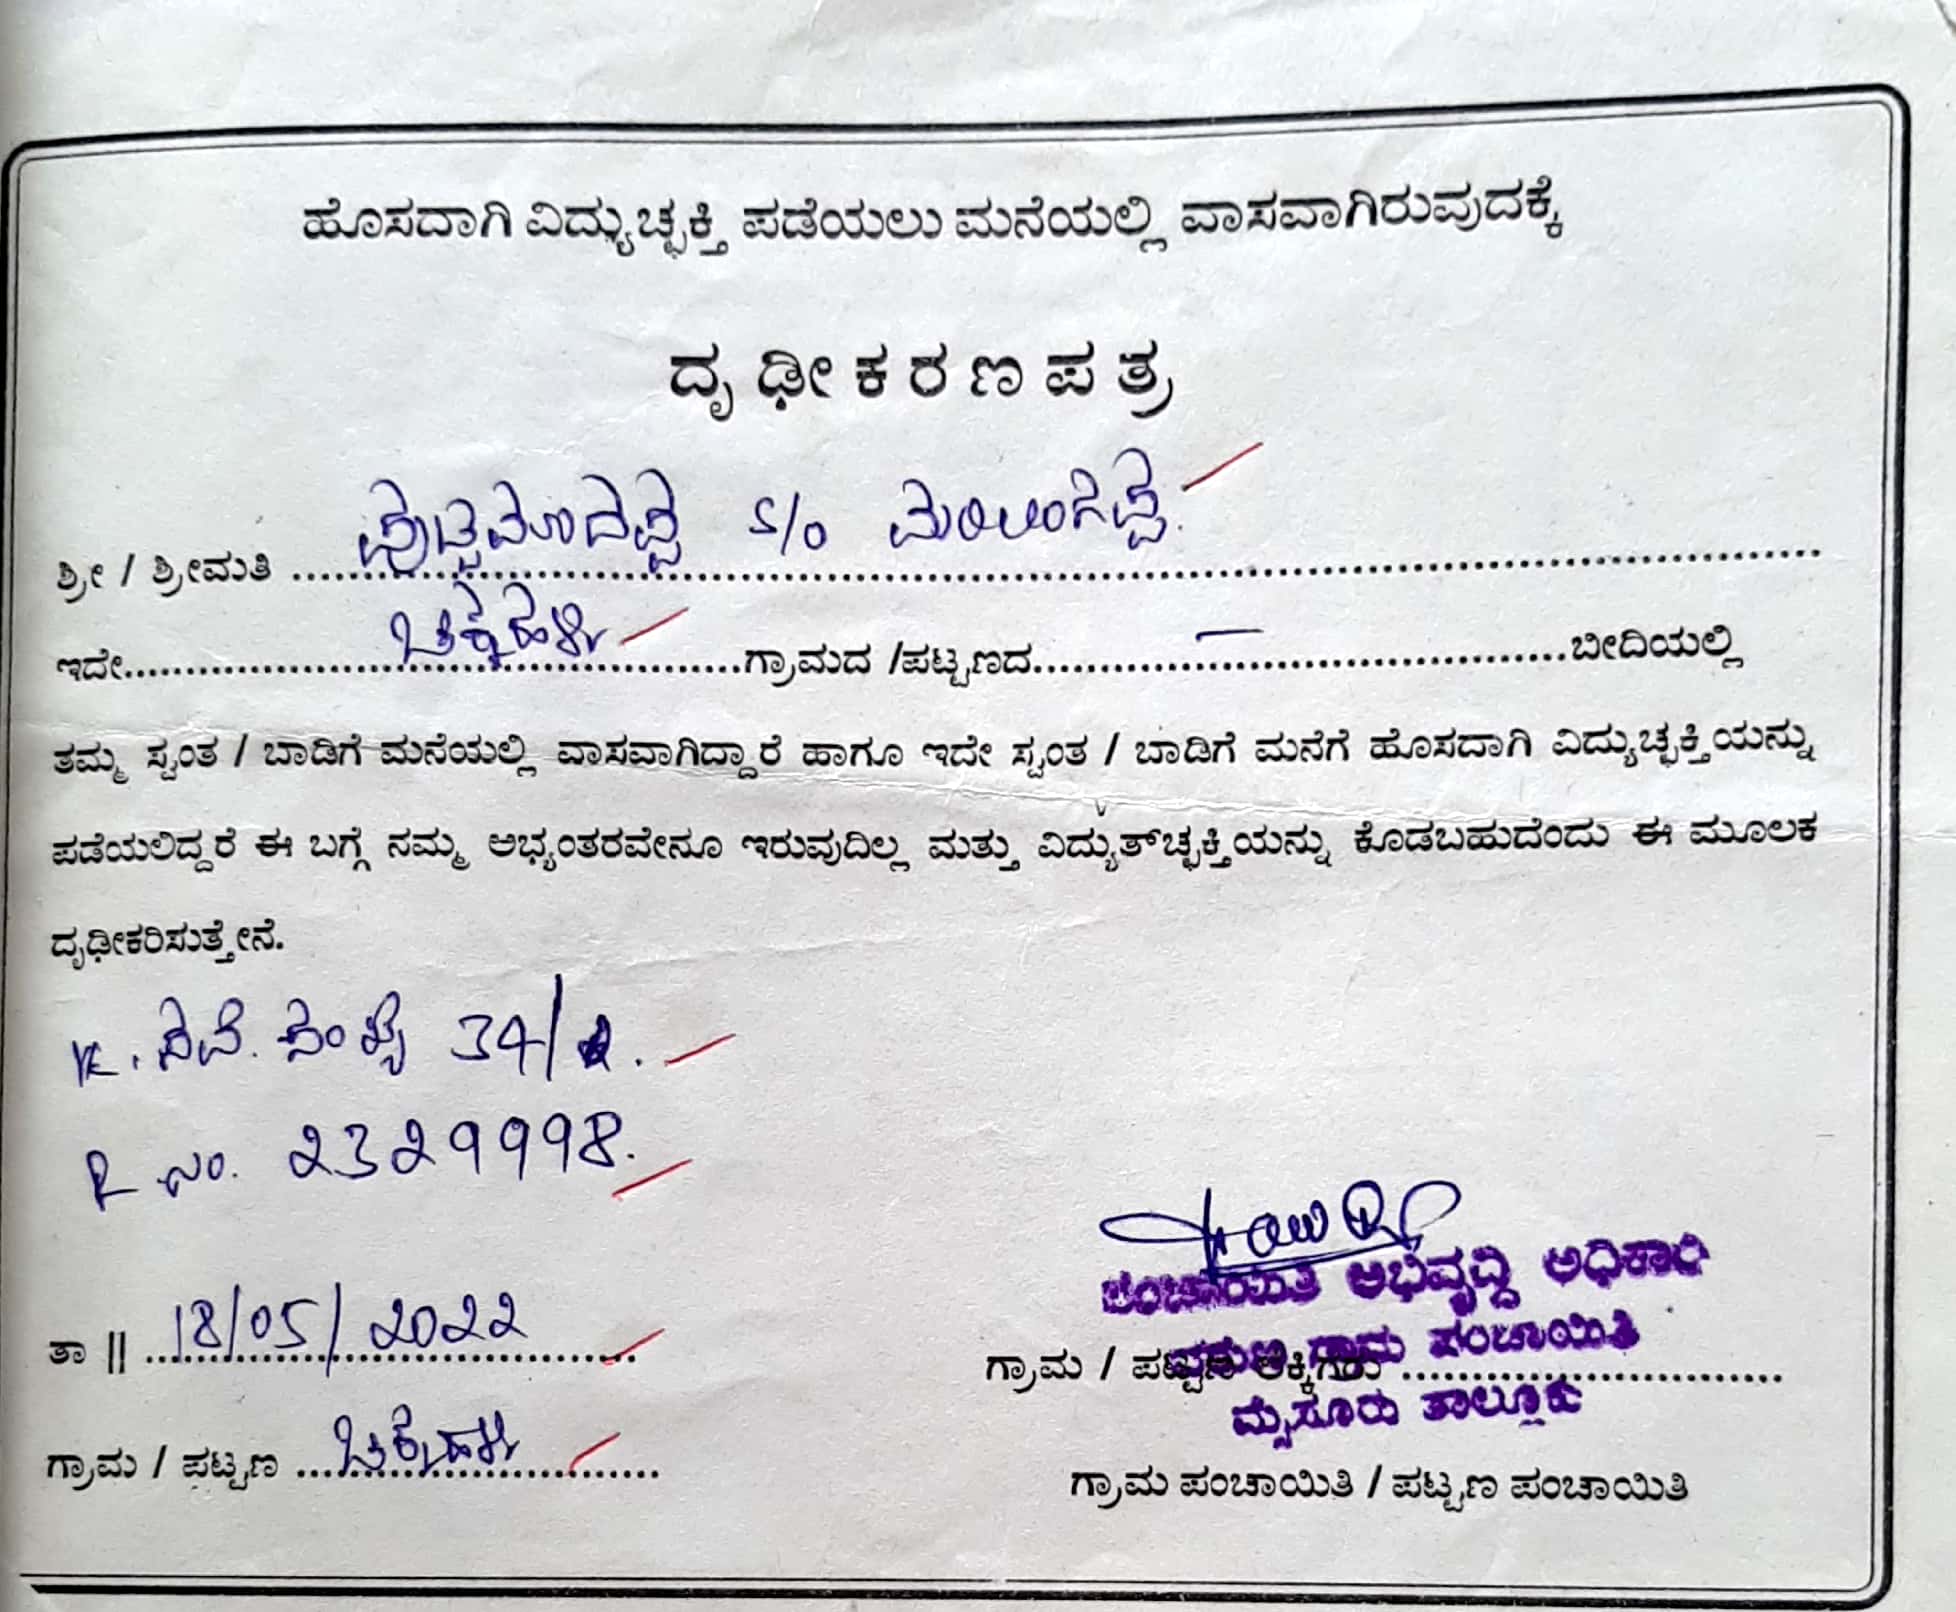 ಹೊಸದಾಗಿ ವಿದ್ಯುಚ್ಛಕ್ತಿ ಪಡೆಯಲು ಮನೆಯಲ್ಲಿ ವಾಸವಾಗಿರುವುದಕ್ಕೆ
ದೃಢೀಕರಣಪತ್ರ
ಶ್ರೀ / ಶ್ರೀಮತಿ ಪುಟ್ಟಮಾದಪ್ಪ S/o
ಇದೇ............ಗ್ರಾಮದ /ಪಟ್ಟಣದ.....–.......ಬೀದಿಯಲ್ಲಿ
ತಮ್ಮ ಸ್ವಂತ / ಬಾಡಿಗೆ ಮನೆಯಲ್ಲಿ ವಾಸವಾಗಿದ್ದಾರೆ ಹಾಗೂ ಇದೇ ಸ್ವಂತ / ಬಾಡಿಗೆ ಮನೆಗೆ ಹೊಸದಾಗಿ ವಿದ್ಯುಚ್ಛಕ್ತಿಯನ್ನು
ಪಡೆಯಲಿದ್ದರೆ ಈ ಬಗ್ಗೆ ನಮ್ಮ ಅಭ್ಯಂತರವೇನೂ ಇರುವುದಿಲ್ಲ ಮತ್ತು ವಿದ್ಯುತ್‌ಚ್ಛಕ್ತಿಯನ್ನು ಕೊಡಬಹುದೆಂದು ಈ ಮೂಲಕ
ದೃಢೀಕರಿಸುತ್ತೇನೆ.
ಸಂಖ್ಯೆ 34/
R ನಂ. 2329998.
ತಾ || 18/05/2022
ಪಂಚಾಯಿತಿ ಅಭಿವೃದ್ಧಿ ಅಧಿಕಾರಿ
ಗ್ರಾಮ ಪಂಚಾಯಿತಿ
ಗ್ರಾಮ / ಪಟ್ಟಣ
ಮೈಸೂರು ತಾಲ್ಲೂಕು
ಗ್ರಾಮ / ಪಟ್ಟಣ
ಗ್ರಾಮ ಪಂಚಾಯಿತಿ / ಪಟ್ಟಣ ಪಂಚಾಯಿತಿ